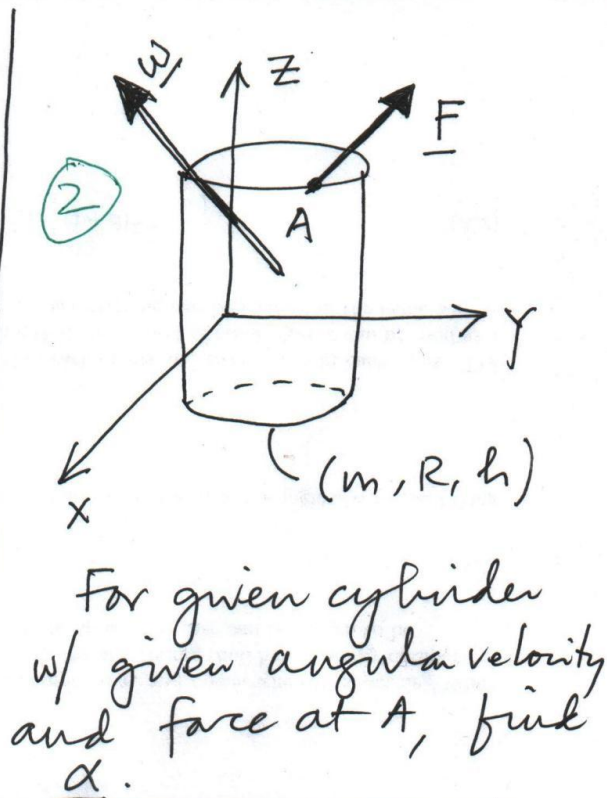 ω
Z
F
2
A
Y
X
(m, R, h)
For given cylinder
w/ given angular velocity
and force at A, find
α.